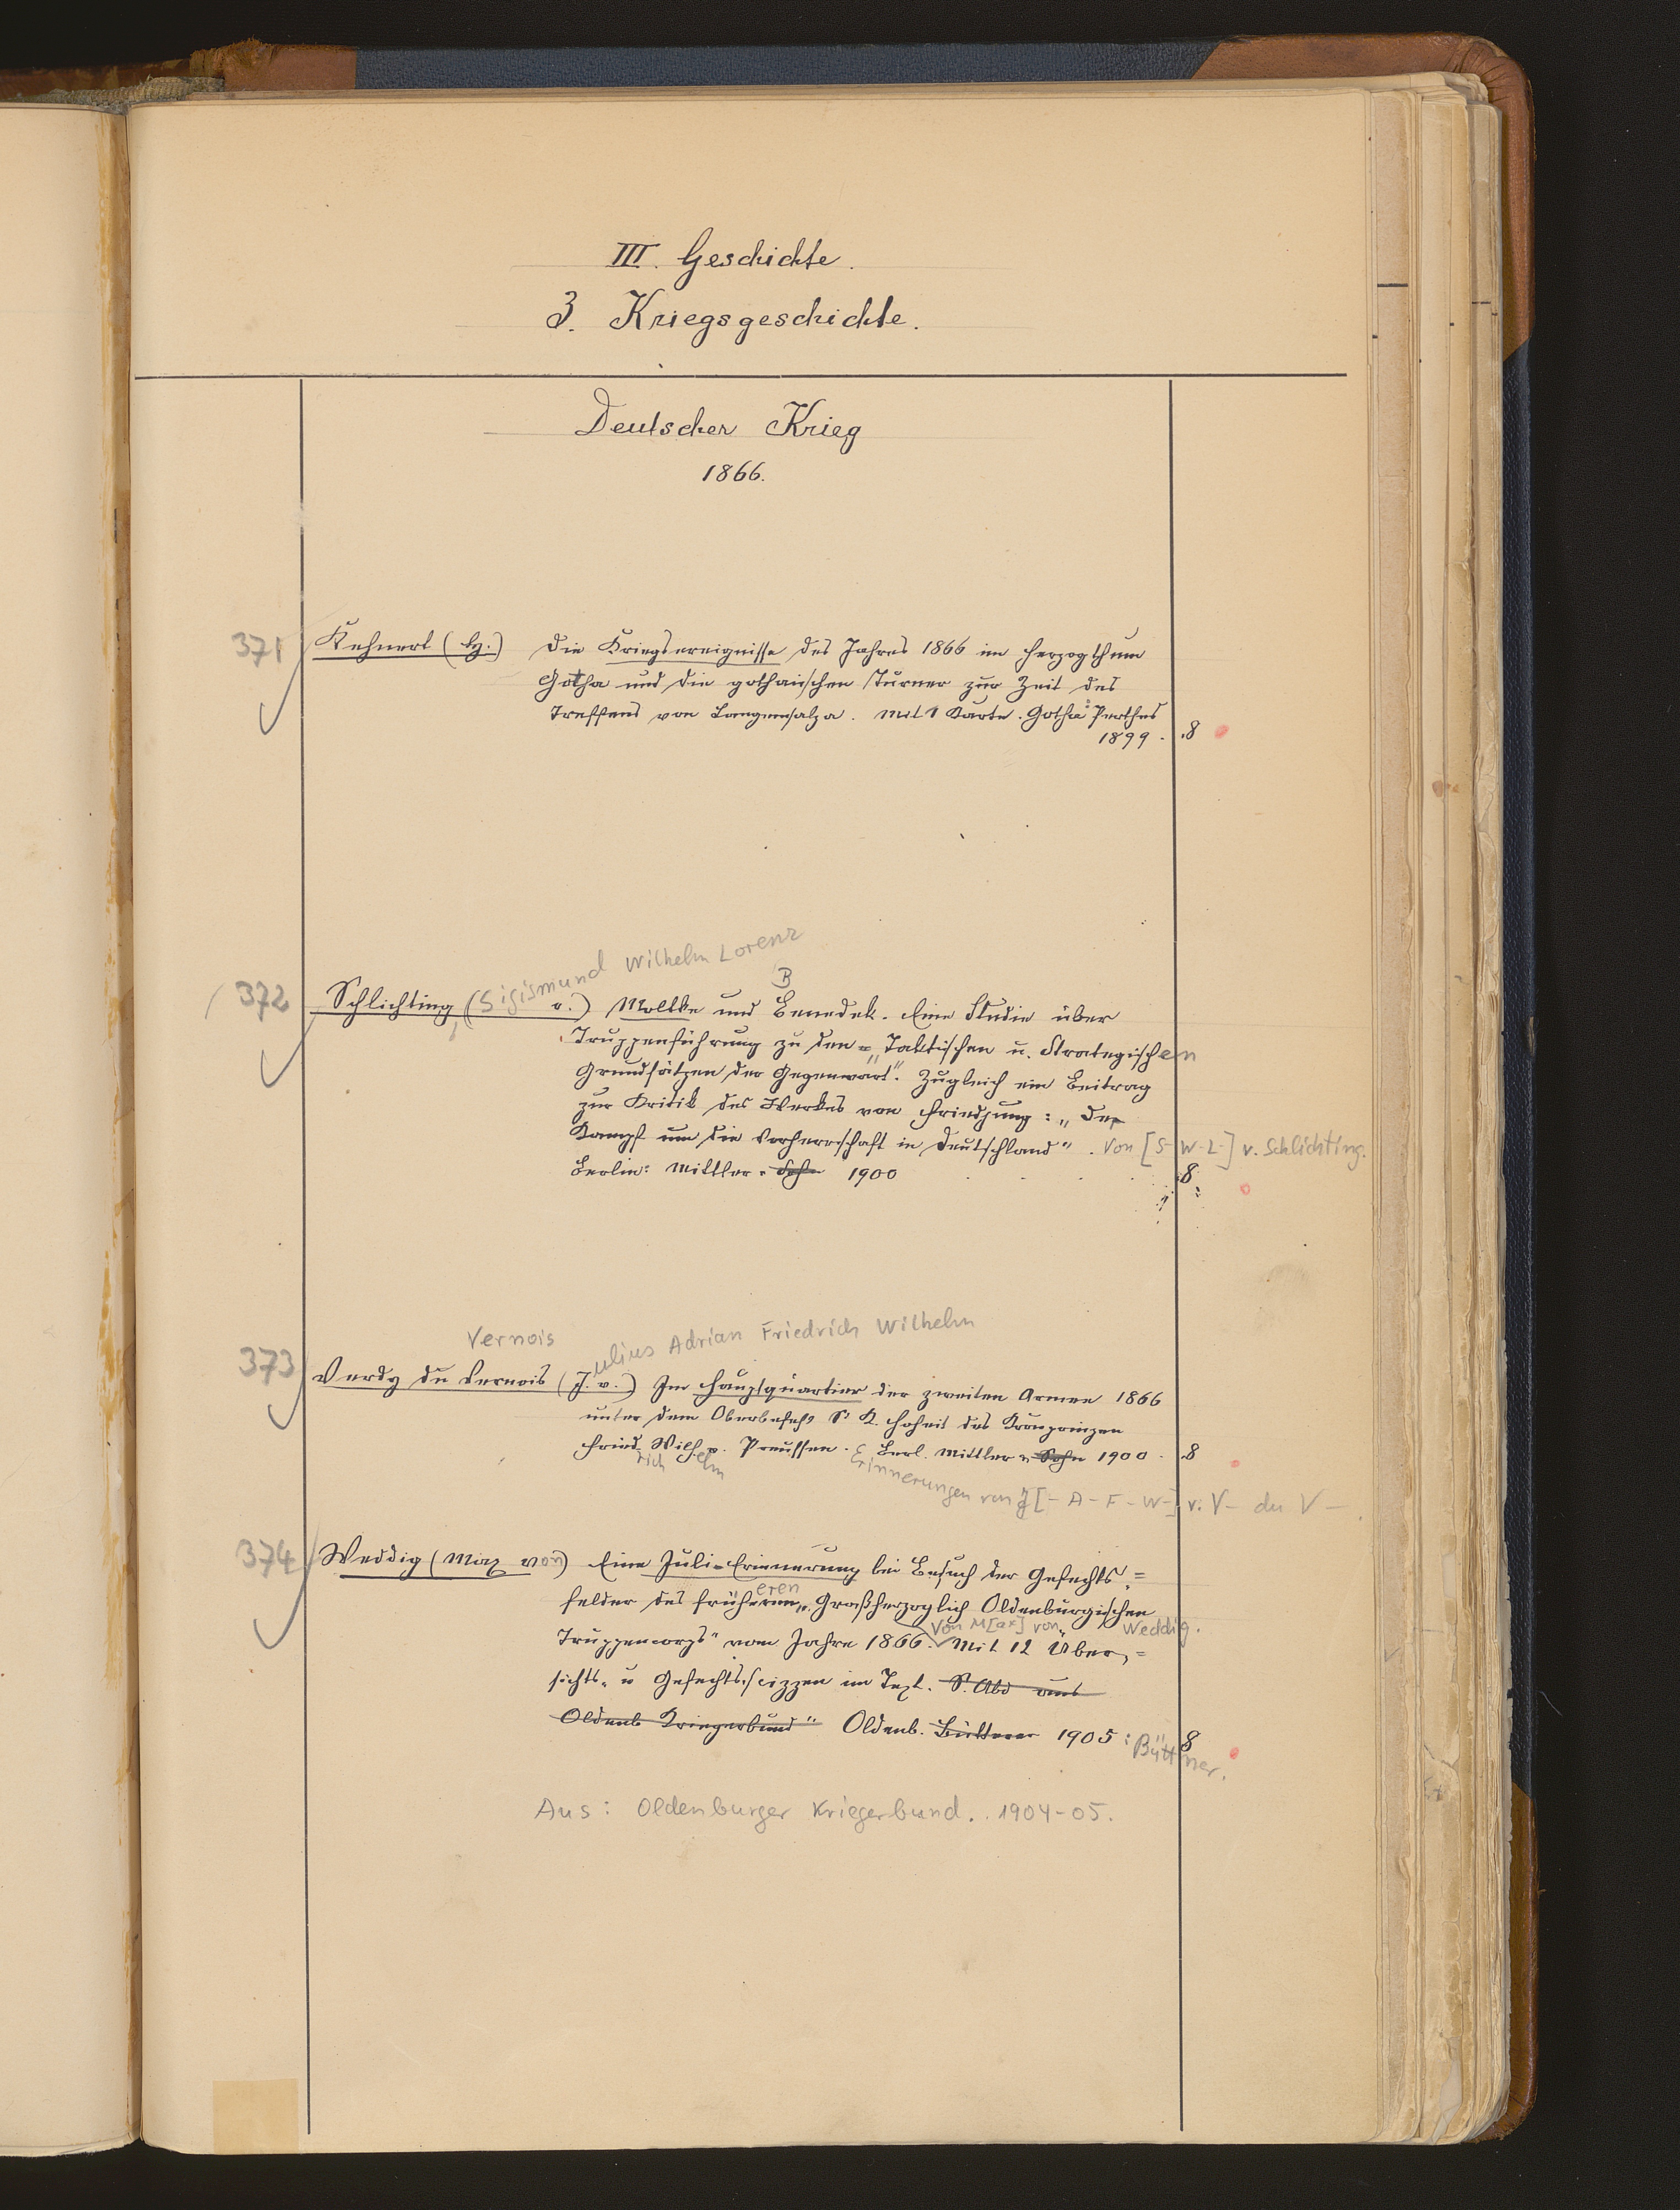 III. Geschichte.
3. Kriegsgeschichte.
Deutscher Krieg
1866.
371 Kehnert (H.) Die Kriegsereignisse des Jahres 1866 im Herzogthum
Gotha und die gothaischen Turner zur Zeit des
Treffens von Langensalza. Mit 1 Karte. Gotha: Perthes
1899. 8
Sigismund Wilhelm Lorenz
B
372 Schlichting, ( v.) Moltke und Benedek. Eine Studie über
Truppenführung zu den "Taktischen u. Strategischen
Grundsätzen der Gegenwart". Zugleich ein Beitrag
zur Kritik des Werkes von Friedjung: "Der
Kampf um die Vorherrschaft in Deutschland". Von [S- W-L-] v. Schlichting.
Berlin: Mittler u. Sohn 1900 8
Vernois ulius Adrian Friedrich Wilhelm
373 Verdy du Vernois (J. v.) Im Hauptquartier der zweiten Armee 1866
unter dem Oberbefehl Sr. K. Hoheit des Kronprinzen
Fried. Wilh. v. Preussen. Berl. Mittler u. Sohn 1900. 8
rich elm Erinnerungen von J[-A-F-W-] v. V- du V-
374 Weddig (Max von) Eine Juli-Erinnerung bei Besuch der Gefechts=
eren
felder des früheren "Großherzoglich Oldenburgischen
Von M[ax] von Weddig.
Truppencorps" vom Jahre 1866. Mit 12 Über=
sichts- u Gefechtsscizzen im Text. S. Abd aus
Oldenb Kriegerbund" Oldenb. Büttner 1905 : Büttner. 8
Aus: Oldenburger Kriegerbund. 1904-05.